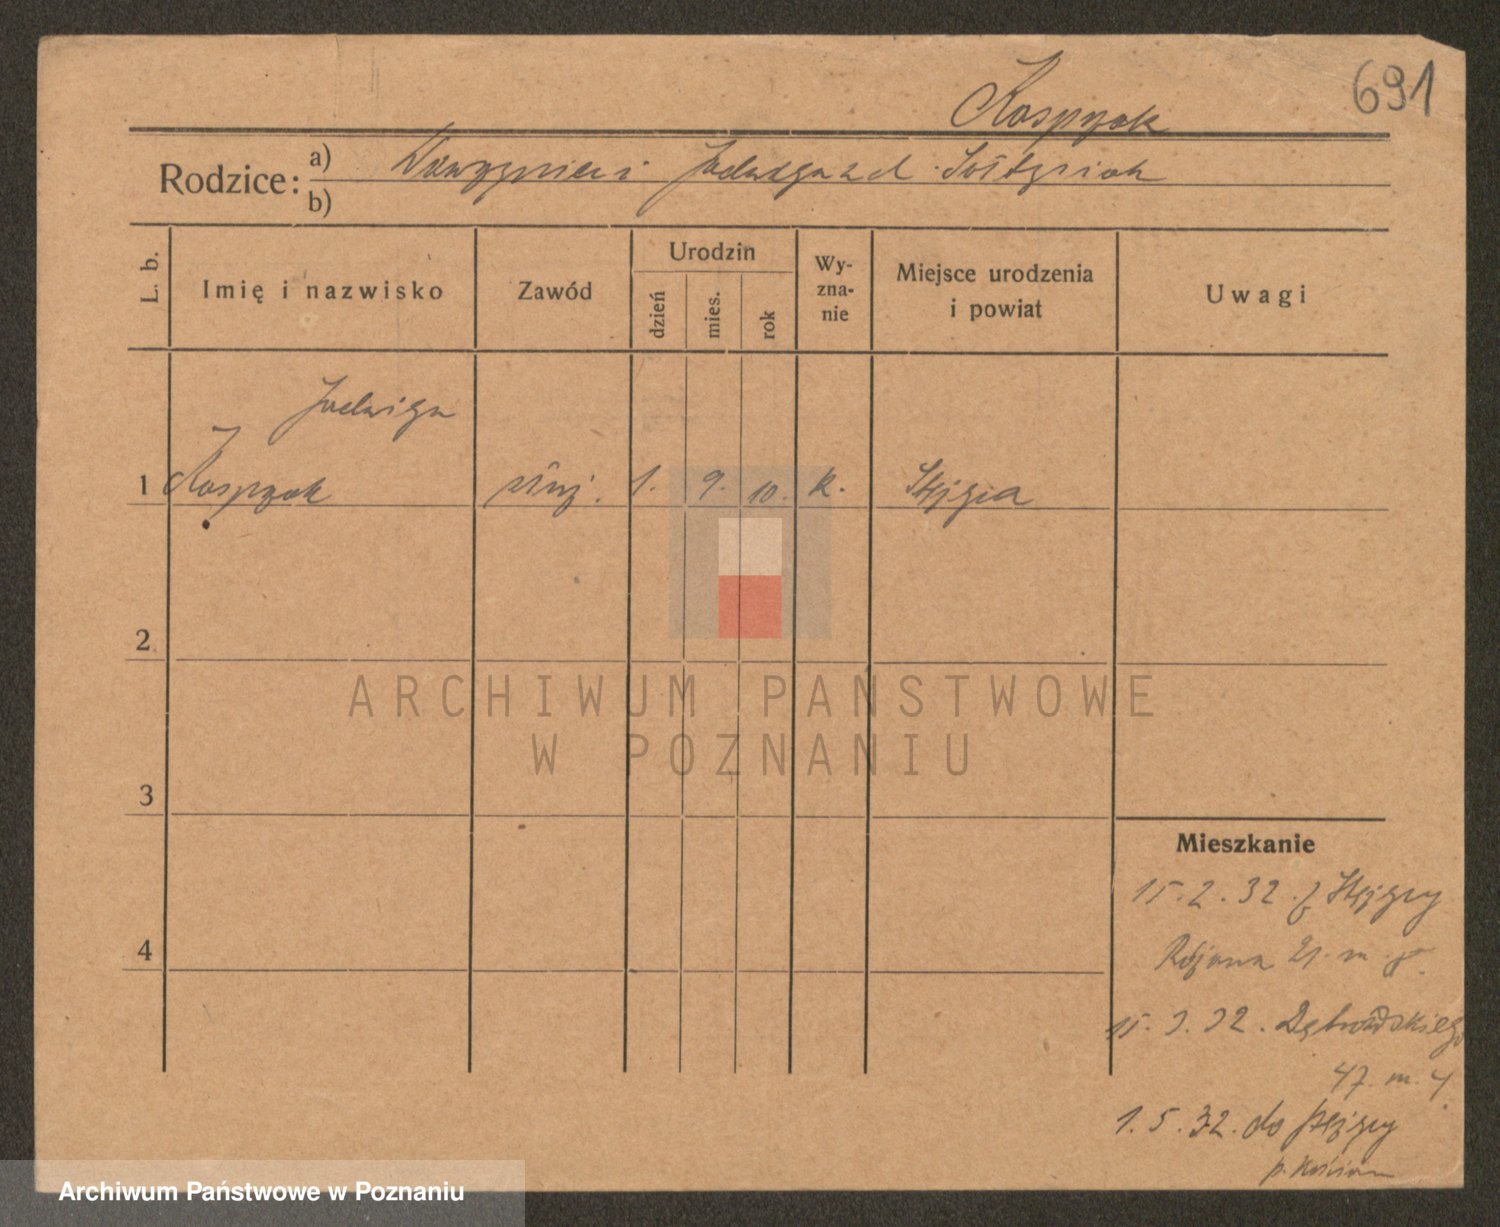 691
Kasprzak
Rodzice: a) Wawrzyniec i Jadwiga z d. Sołtysiak
b)
L. b.
Imię i nazwisko
Zawód
Urodzin
dzień
mies.
rok
Wy-
zna-
nie
Miejsce urodzenia
i powiat
Uwagi
Jadwiga
1 Kasprzak służ. 1. 9. 10. k.
2
3
4
ARCHIWUM PAŃSTWOWE
W POZNANIU
Mieszkanie
15.2.32. z
21. m.
15.3.32. Dąbrowskiego
47. m. 4.
1.5.32. do
p. Kościan
Archiwum Państwowe w Poznaniu